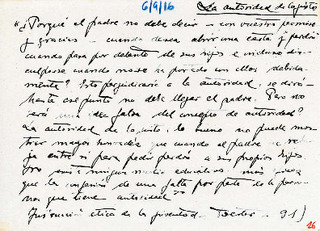 6/9/16 La autoridad de lo justo
"¿Porqué el padre no debe decir - con vuestro permiso
y gracias - cuando desea abrir una carta y perdón
cuando pasa por delante de sus hijos e incluso dis-
culparse cuando nuestro ha portado con ellos debida-
mente? Esto perjudicaría a la autoridad, se dirá -
Hasta ese punto no debe llegar el padre. Pero no
será una idea falsa del concepto de autoridad?
La autoridad de lo justo, lo bueno no puede mos-
trar mayor que cuando el padre
para pedir perdón a sus propios hijos
ningún medio educativo más
que la confesión de una falta por parte de la perso-
na que tiene autoridad"
ética de la juventud - 91)
26